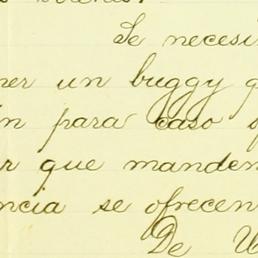 Se necesi
ner un buggy q
ín para caso q
r que manden
ncia se ofrecen
De U